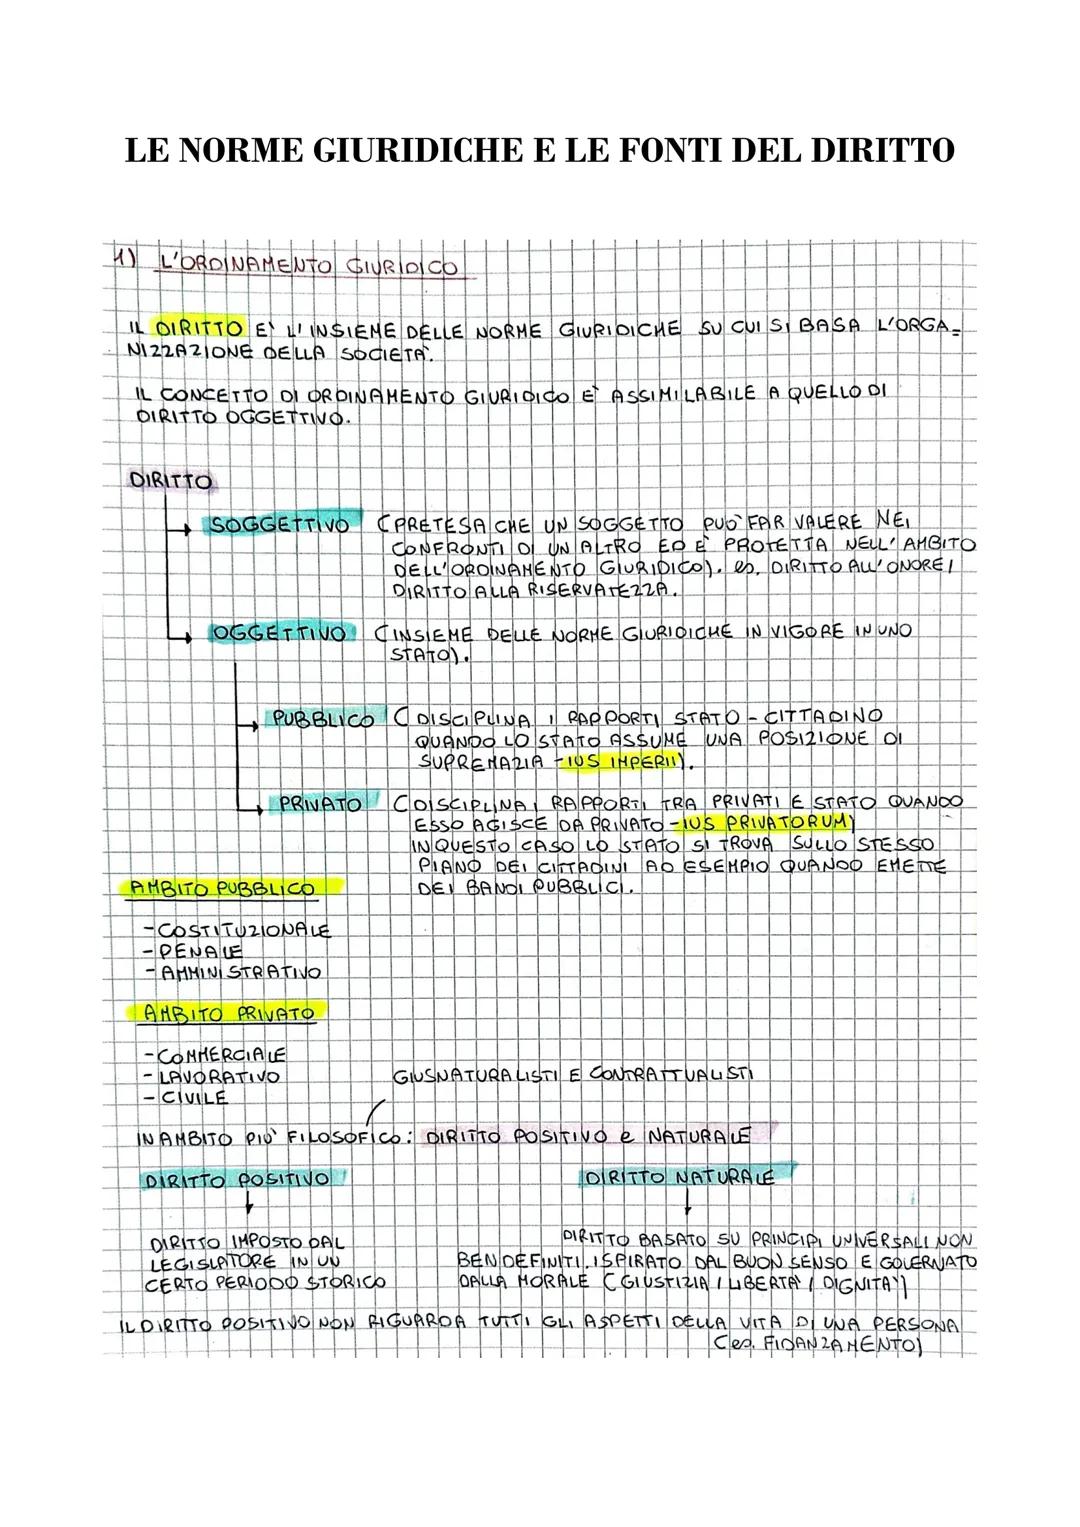 LE NORME GIURIDICHE E LE FONTI DEL DIRITTO
1) L'ORDINAMENTO GIURIDICO
IL DIRITTO E' L'INSIEME DELLE NORME GIURIDICHE SU CUI SI BASA L'ORGA-
NIZZAZIONE DELLA SOCIETA'.
IL CONCETTO DI ORDINAMENTO GIURIDICO E' ASSIMILABILE A QUELLO DI
DIRITTO OGGETTIVO.
DIRITTO
SOGGETTIVO (PRETESA CHE UN SOGGETTO PUO' FAR VALERE NEI
CONFRONTI DI UN ALTRO ED E' PROTETTA NELL'AMBITO
DELL'ORDINAMENTO GIURIDICO). es. DIRITTO ALL'ONORE,
DIRITTO ALLA RISERVATEZZA.
OGGETTIVO (INSIEME DELLE NORME GIURIDICHE IN VIGORE IN UNO
STATO).
PUBBLICO (DISCIPLINA I RAPPORTI STATO - CITTADINO
QUANDO LO STATO ASSUME UNA POSIZIONE DI
SUPREMAZIA - IUS IMPERII).
PRIVATO (DISCIPLINA I RAPPORTI TRA PRIVATI E STATO QUANDO
ESSO AGISCE DA PRIVATO - IUS PRIVATORUM)
IN QUESTO CASO LO STATO SI TROVA SULLO STESSO
PIANO DEI CITTADINI AD ESEMPIO QUANDO EMETTE
DEI BANDI PUBBLICI.
AMBITO PUBBLICO
- COSTITUZIONALE
- PENALE
- AMMINISTRATIVO
AMBITO PRIVATO
- COMMERCIALE
- LAVORATIVO
- CIVILE
GIUSNATURALISTI E CONTRATTUALISTI
IN AMBITO PIU' FILOSOFICO: DIRITTO POSITIVO e NATURALE
DIRITTO POSITIVO
DIRITTO IMPOSTO DAL
LEGISLATORE IN UN
CERTO PERIODO STORICO
DIRITTO NATURALE
DIRITTO BASATO SU PRINCIPI UNIVERSALI NON
BEN DEFINITI, ISPIRATO DAL BUON SENSO E GOVERNATO
DALLA MORALE (GIUSTIZIA, LIBERTA', DIGNITA')
IL DIRITTO POSITIVO NON RIGUARDA TUTTI GLI ASPETTI DELLA VITA DI UNA PERSONA
(es. FIDANZAMENTO)